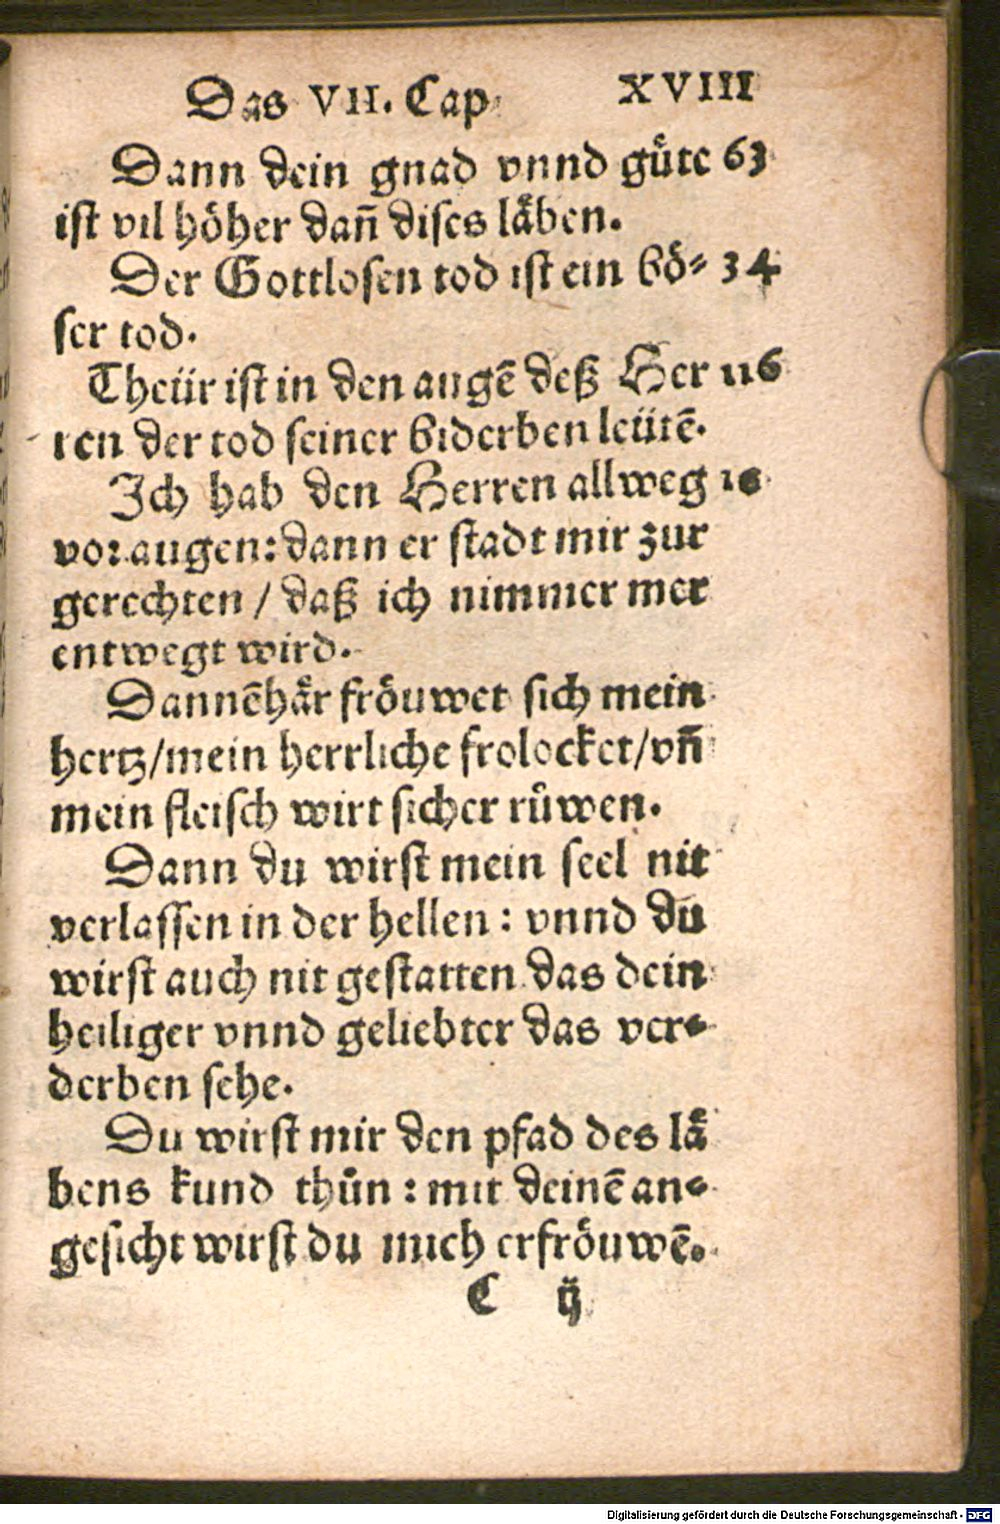 Das VII. Cap. XVIII
Dann dein gnad vnnd guͤte 63
ist vil hoͤher dañ dises laͤben.
Der Gottlosen tod ist ein boͤ⸗ 34
ser tod.
Theür ist in den augē deß Her 116
ren der tod seiner biderben leütē.
Ich hab den Herren allweg 16
vor augen: dann er stadt mir zur
gerechten / daß ich nimmer mer
entwegt wird.
Dannēhaͤr froͤuwet sich mein
hertz/mein herrliche frolocket/vñ
mein fleisch wirt sicher ruͤwen.
Dann du wirst mein seel nit
verlassen in der hellen: vnnd du
wirst auch nit gestatten das dein
heiliger vnnd geliebter das ver⸗
derben sehe.
Du wirst mir den pfad des laͤ
bens kund thuͦn: mit deinē an⸗
gesicht wirst du mich erfroͤuwē.
C ij
Digitalisierung gefördert durch die Deutsche Forschungsgemeinschaft - DFG